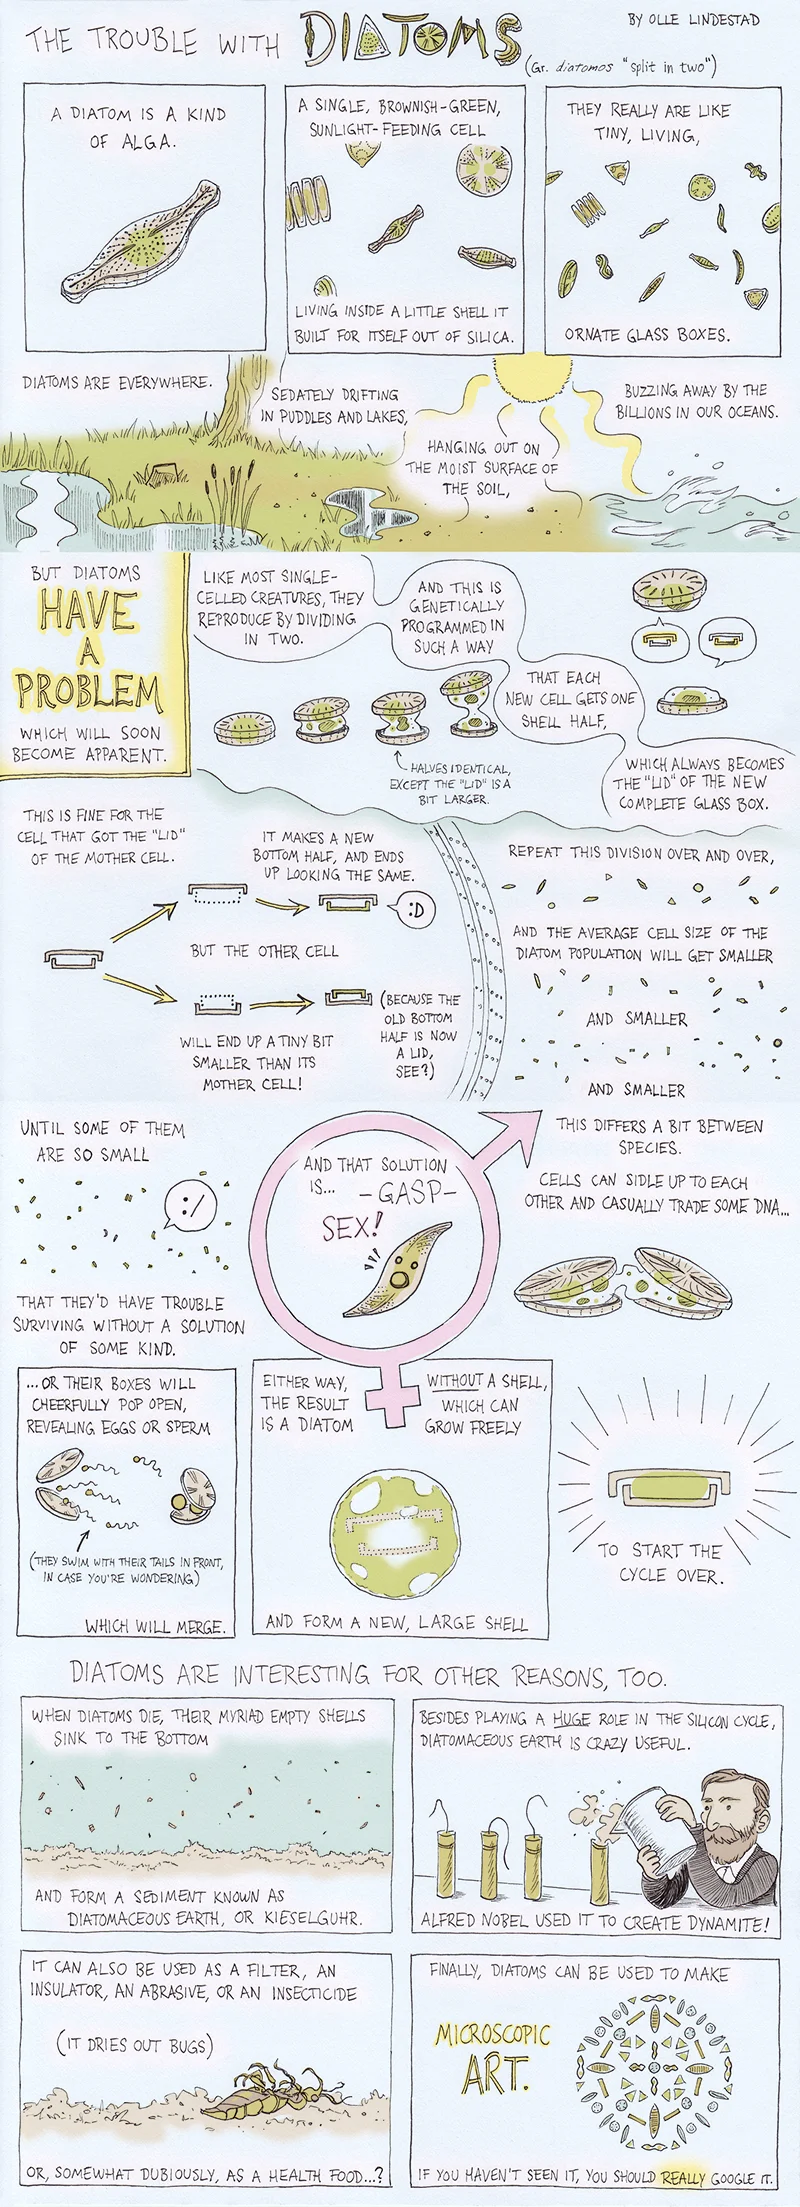 THE TROUBLE WITH DIATOMS
BY OLLE LINDESTAD
(Gr. diatomos "split in two")
A DIATOM IS A KIND
OF ALGA.
A SINGLE, BROWNISH-GREEN,
SUNLIGHT-FEEDING CELL
LIVING INSIDE A LITTLE SHELL IT
BUILT FOR ITSELF OUT OF SILICA.
THEY REALLY ARE LIKE
TINY, LIVING,
ORNATE GLASS BOXES.
DIATOMS ARE EVERYWHERE.
SEDATELY DRIFTING
IN PUDDLES AND LAKES,
HANGING OUT ON
THE MOIST SURFACE OF
THE SOIL,
BUZZING AWAY BY THE
BILLIONS IN OUR OCEANS.
BUT DIATOMS
HAVE
A
PROBLEM
WHICH WILL SOON
BECOME APPARENT.
LIKE MOST SINGLE-
CELLED CREATURES, THEY
REPRODUCE BY DIVIDING
IN TWO.
AND THIS IS
GENETICALLY
PROGRAMMED IN
SUCH A WAY
THAT EACH
NEW CELL GETS ONE
SHELL HALF,
HALVES IDENTICAL,
EXCEPT THE "LID" IS A
BIT LARGER.
WHICH ALWAYS BECOMES
THE "LID" OF THE NEW
COMPLETE GLASS BOX.
THIS IS FINE FOR THE
CELL THAT GOT THE "LID"
OF THE MOTHER CELL.
IT MAKES A NEW
BOTTOM HALF, AND ENDS
UP LOOKING THE SAME.
:D
BUT THE OTHER CELL
WILL END UP A TINY BIT
SMALLER THAN ITS
MOTHER CELL!
(BECAUSE THE
OLD BOTTOM
HALF IS NOW
A LID,
SEE?)
REPEAT THIS DIVISION OVER AND OVER,
AND THE AVERAGE CELL SIZE OF THE
DIATOM POPULATION WILL GET SMALLER
AND SMALLER
AND SMALLER
UNTIL SOME OF THEM
ARE SO SMALL
:/
THAT THEY'D HAVE TROUBLE
SURVIVING WITHOUT A SOLUTION
OF SOME KIND.
AND THAT SOLUTION
IS... -GASP-
SEX!
THIS DIFFERS A BIT BETWEEN
SPECIES.
CELLS CAN SIDLE UP TO EACH
OTHER AND CASUALLY TRADE SOME DNA...
...OR THEIR BOXES WILL
CHEERFULLY POP OPEN,
REVEALING EGGS OR SPERM
(THEY SWIM WITH THEIR TAILS IN FRONT,
IN CASE YOU'RE WONDERING)
WHICH WILL MERGE.
EITHER WAY,
THE RESULT
IS A DIATOM
WITHOUT A SHELL,
WHICH CAN
GROW FREELY
AND FORM A NEW, LARGE SHELL
TO START THE
CYCLE OVER.
DIATOMS ARE INTERESTING FOR OTHER REASONS, TOO.
WHEN DIATOMS DIE, THEIR MYRIAD EMPTY SHELLS
SINK TO THE BOTTOM
AND FORM A SEDIMENT KNOWN AS
DIATOMACEOUS EARTH, OR KIESELGUHR.
BESIDES PLAYING A HUGE ROLE IN THE SILICON CYCLE,
DIATOMACEOUS EARTH IS CRAZY USEFUL.
ALFRED NOBEL USED IT TO CREATE DYNAMITE!
IT CAN ALSO BE USED AS A FILTER, AN
INSULATOR, AN ABRASIVE, OR AN INSECTICIDE
(IT DRIES OUT BUGS)
OR, SOMEWHAT DUBIOUSLY, AS A HEALTH FOOD...?
FINALLY, DIATOMS CAN BE USED TO MAKE
MICROSCOPIC
ART.
IF YOU HAVEN'T SEEN IT, YOU SHOULD REALLY GOOGLE IT.